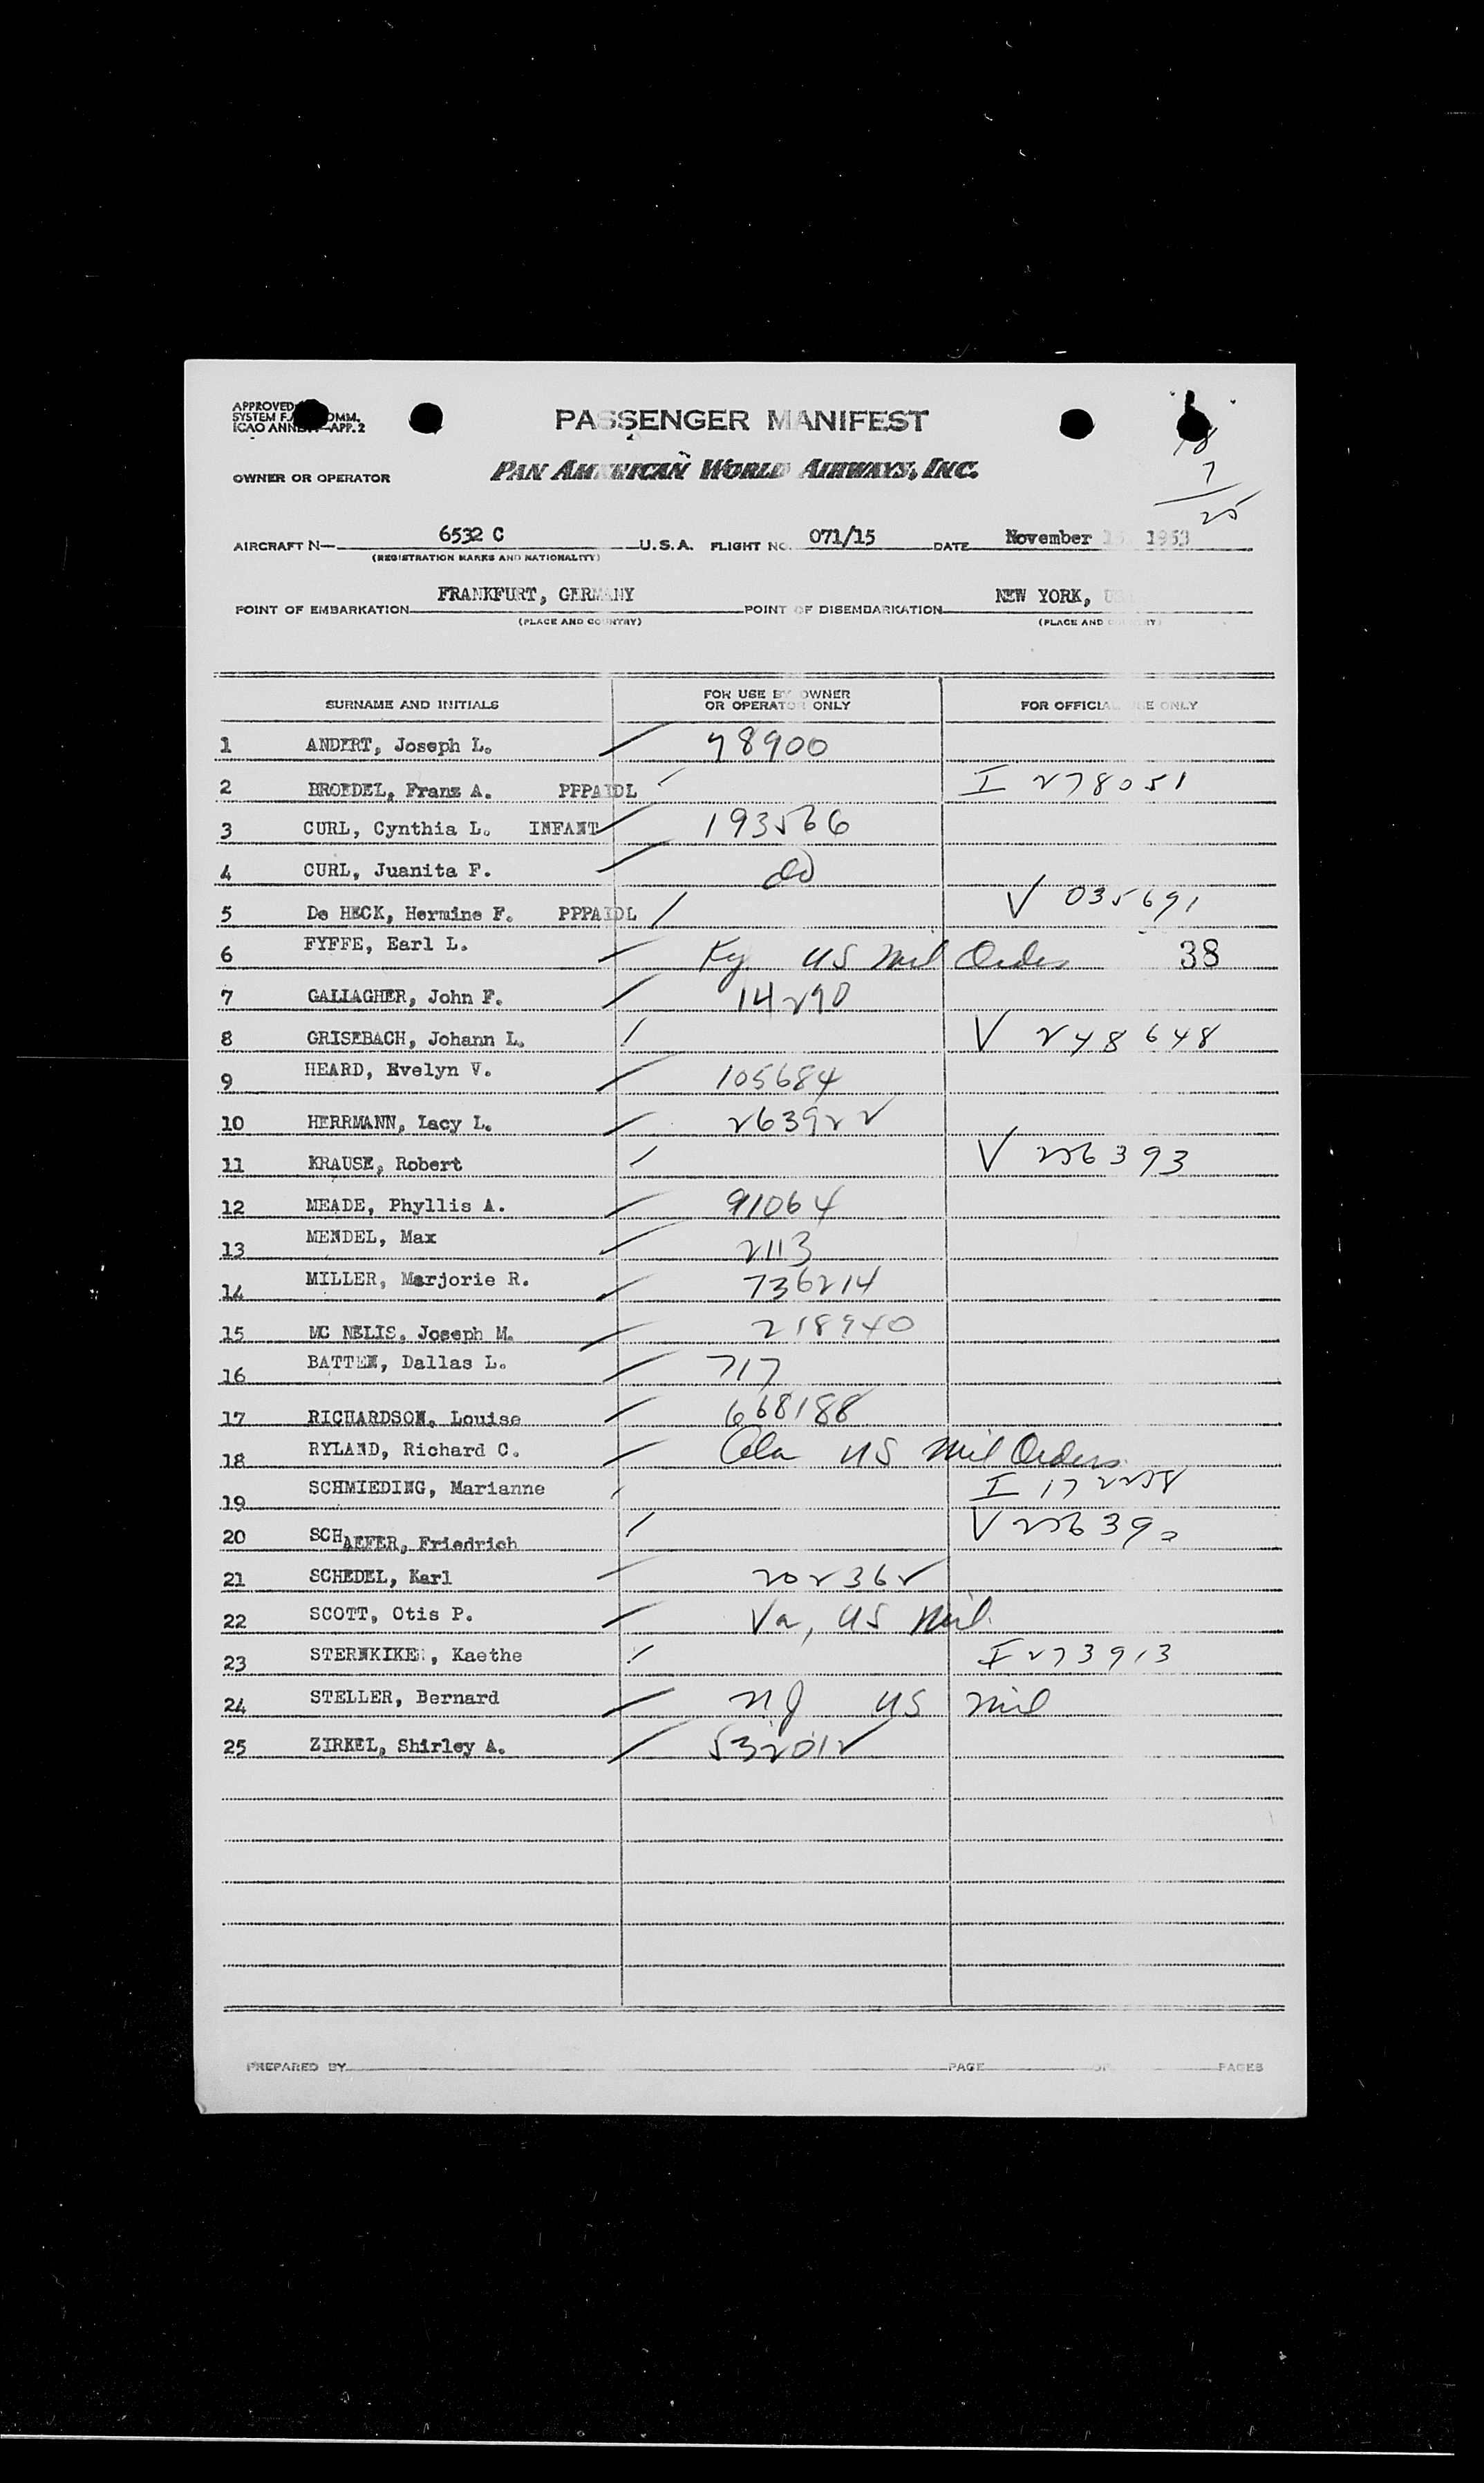 APPROVED
SYSTEM F.A. COMM.
ICAO ANNEX APP. 2
PASSENGER MANIFEST
18
7
25
OWNER OR OPERATOR PAN AMERICAN WORLD AIRWAYS, INC.
AIRCRAFT N— 6532 C U.S.A. FLIGHT NO. 071/15 DATE November 15, 1953
(REGISTRATION MARKS AND NATIONALITY)
POINT OF EMBARKATION FRANKFURT, GERMANY POINT OF DISEMBARKATION NEW YORK, USA
(PLACE AND COUNTRY) (PLACE AND COUNTRY)
SURNAME AND INITIALS FOR USE BY OWNER OR OPERATOR ONLY FOR OFFICIAL USE ONLY
1 ANDERT, Joseph L. 78900
2 BROEDEL, Franz A. PPPAIDL I 278051
3 CURL, Cynthia L. INFANT 193566
4 CURL, Juanita F. do
5 De HECK, Hermine F. PPPAIDL V 035691
6 FYFFE, Earl L. Ky US Mil Orders 38
7 GALLAGHER, John F. 14290
8 GRISEBACH, Johann L. V 248648
9 HEARD, Evelyn V. 105684
10 HERRMANN, Lacy L. 263922
11 KRAUSE, Robert V 256393
12 MEADE, Phyllis A. 91064
13 MENDEL, Max 2113
14 MILLER, Marjorie R. 736214
15 MC NELIS, Joseph M. 218940
16 BATTEN, Dallas L. 717
17 RICHARDSON, Louise 668188
18 RYLAND, Richard C. Ala US Mil Orders
19 SCHMIEDING, Marianne I 172258
20 SCHAEFER, Friedrich V 256392
21 SCHEDEL, Karl 202362
22 SCOTT, Otis P. Va, US Mil.
23 STERNKIKER, Kaethe I 273913
24 STELLER, Bernard NJ US Mil
25 ZIRKEL, Shirley A. 532012
PREPARED BY PAGE OF PAGES